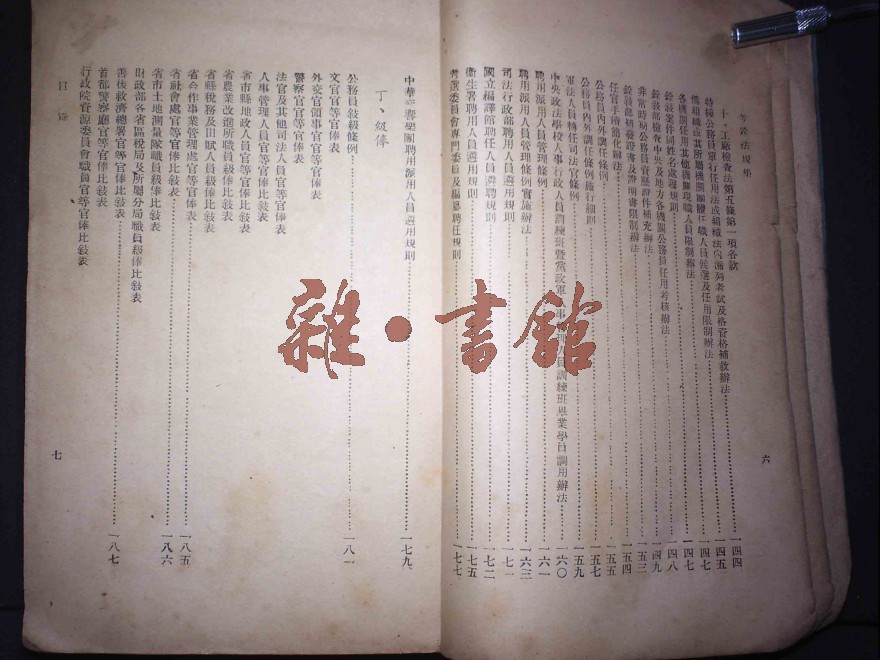 考銓法規集
十、工廠檢查法第五條第一項各試……一四四
特種公務員單行任用法或組織法內漏列考試及格資格補救辦法……一四五
備組織並其所屬機關團體任職人員候選及任用限制辦法……一四七
各機關任用其他機關現職人員限制辦法……一四七
銓敍案件同姓名處理規則……一四八
銓敍部檢發中央及地方各機關公務員任用考核辦法……一四九
非常時期公務員資歷證件補充辦法……一五四
銓敍部補發證書及證明書限制辦法
任官手續簡化辦法……一五五
公務員內外調任條例……一五七
公務員內外調任條例施行細則
軍法人員轉任司法官條例……一五九
中央政法學校人事行政人員訓練班暨黨政軍人事管理人員訓練班畢業學員調用辦法……一六〇
聘用派用人員管理條例……一六一
聘用派用人員管理條例實施辦法……一六三
司法行政部聘用人員遴用規則……一七一
國立編譯館聘任人員遴用規則……一七二
衛生署聘用人員遴用規則……一七五
考選委員會專門委員及編纂聘任規則……一七七
六
中華交響樂團聘用派用人員遴用規則……一七九
丁、級俸
公務員敍級條例……一八一
文官官等官俸表
外交官領事官官等官俸表
警察官官等官俸表
法官及其他司法人員官等官俸表
人事管理人員官等官俸表
省市縣地政人員官等官俸比敍表
省農業改進所職員級俸比敍表
省縣稅務及田賦人員級俸比敍表
省合作事業管理處官等官俸表
省社會處官等官俸比敍表……一八五
省市土地測量隊職員級俸比敍表……一八六
財政部各省區稅局及所屬分局職員級俸比敍表
善後救濟總署官等官俸比敍表……一八七
首都警察廳官等官俸比敍表
行政院資源委員會職員官等官俸比敍表
目錄
七
雜·書館